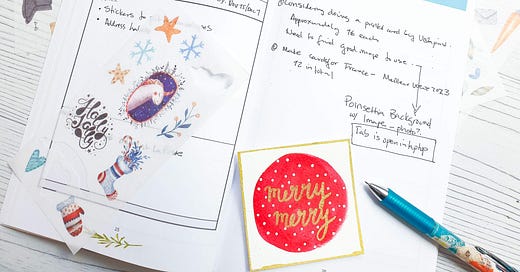 • Stickers to
• Address la
Holly
Jolly
Considering doing a posted card by Vistaprint.
Approximately 76 each
Need to find good image to use...
Make cards for France - Meilleur Vœux 2023
12 in total
Poinsettia Background
w/ Image - photo?
Tab is open in laptop
merry
merry
25